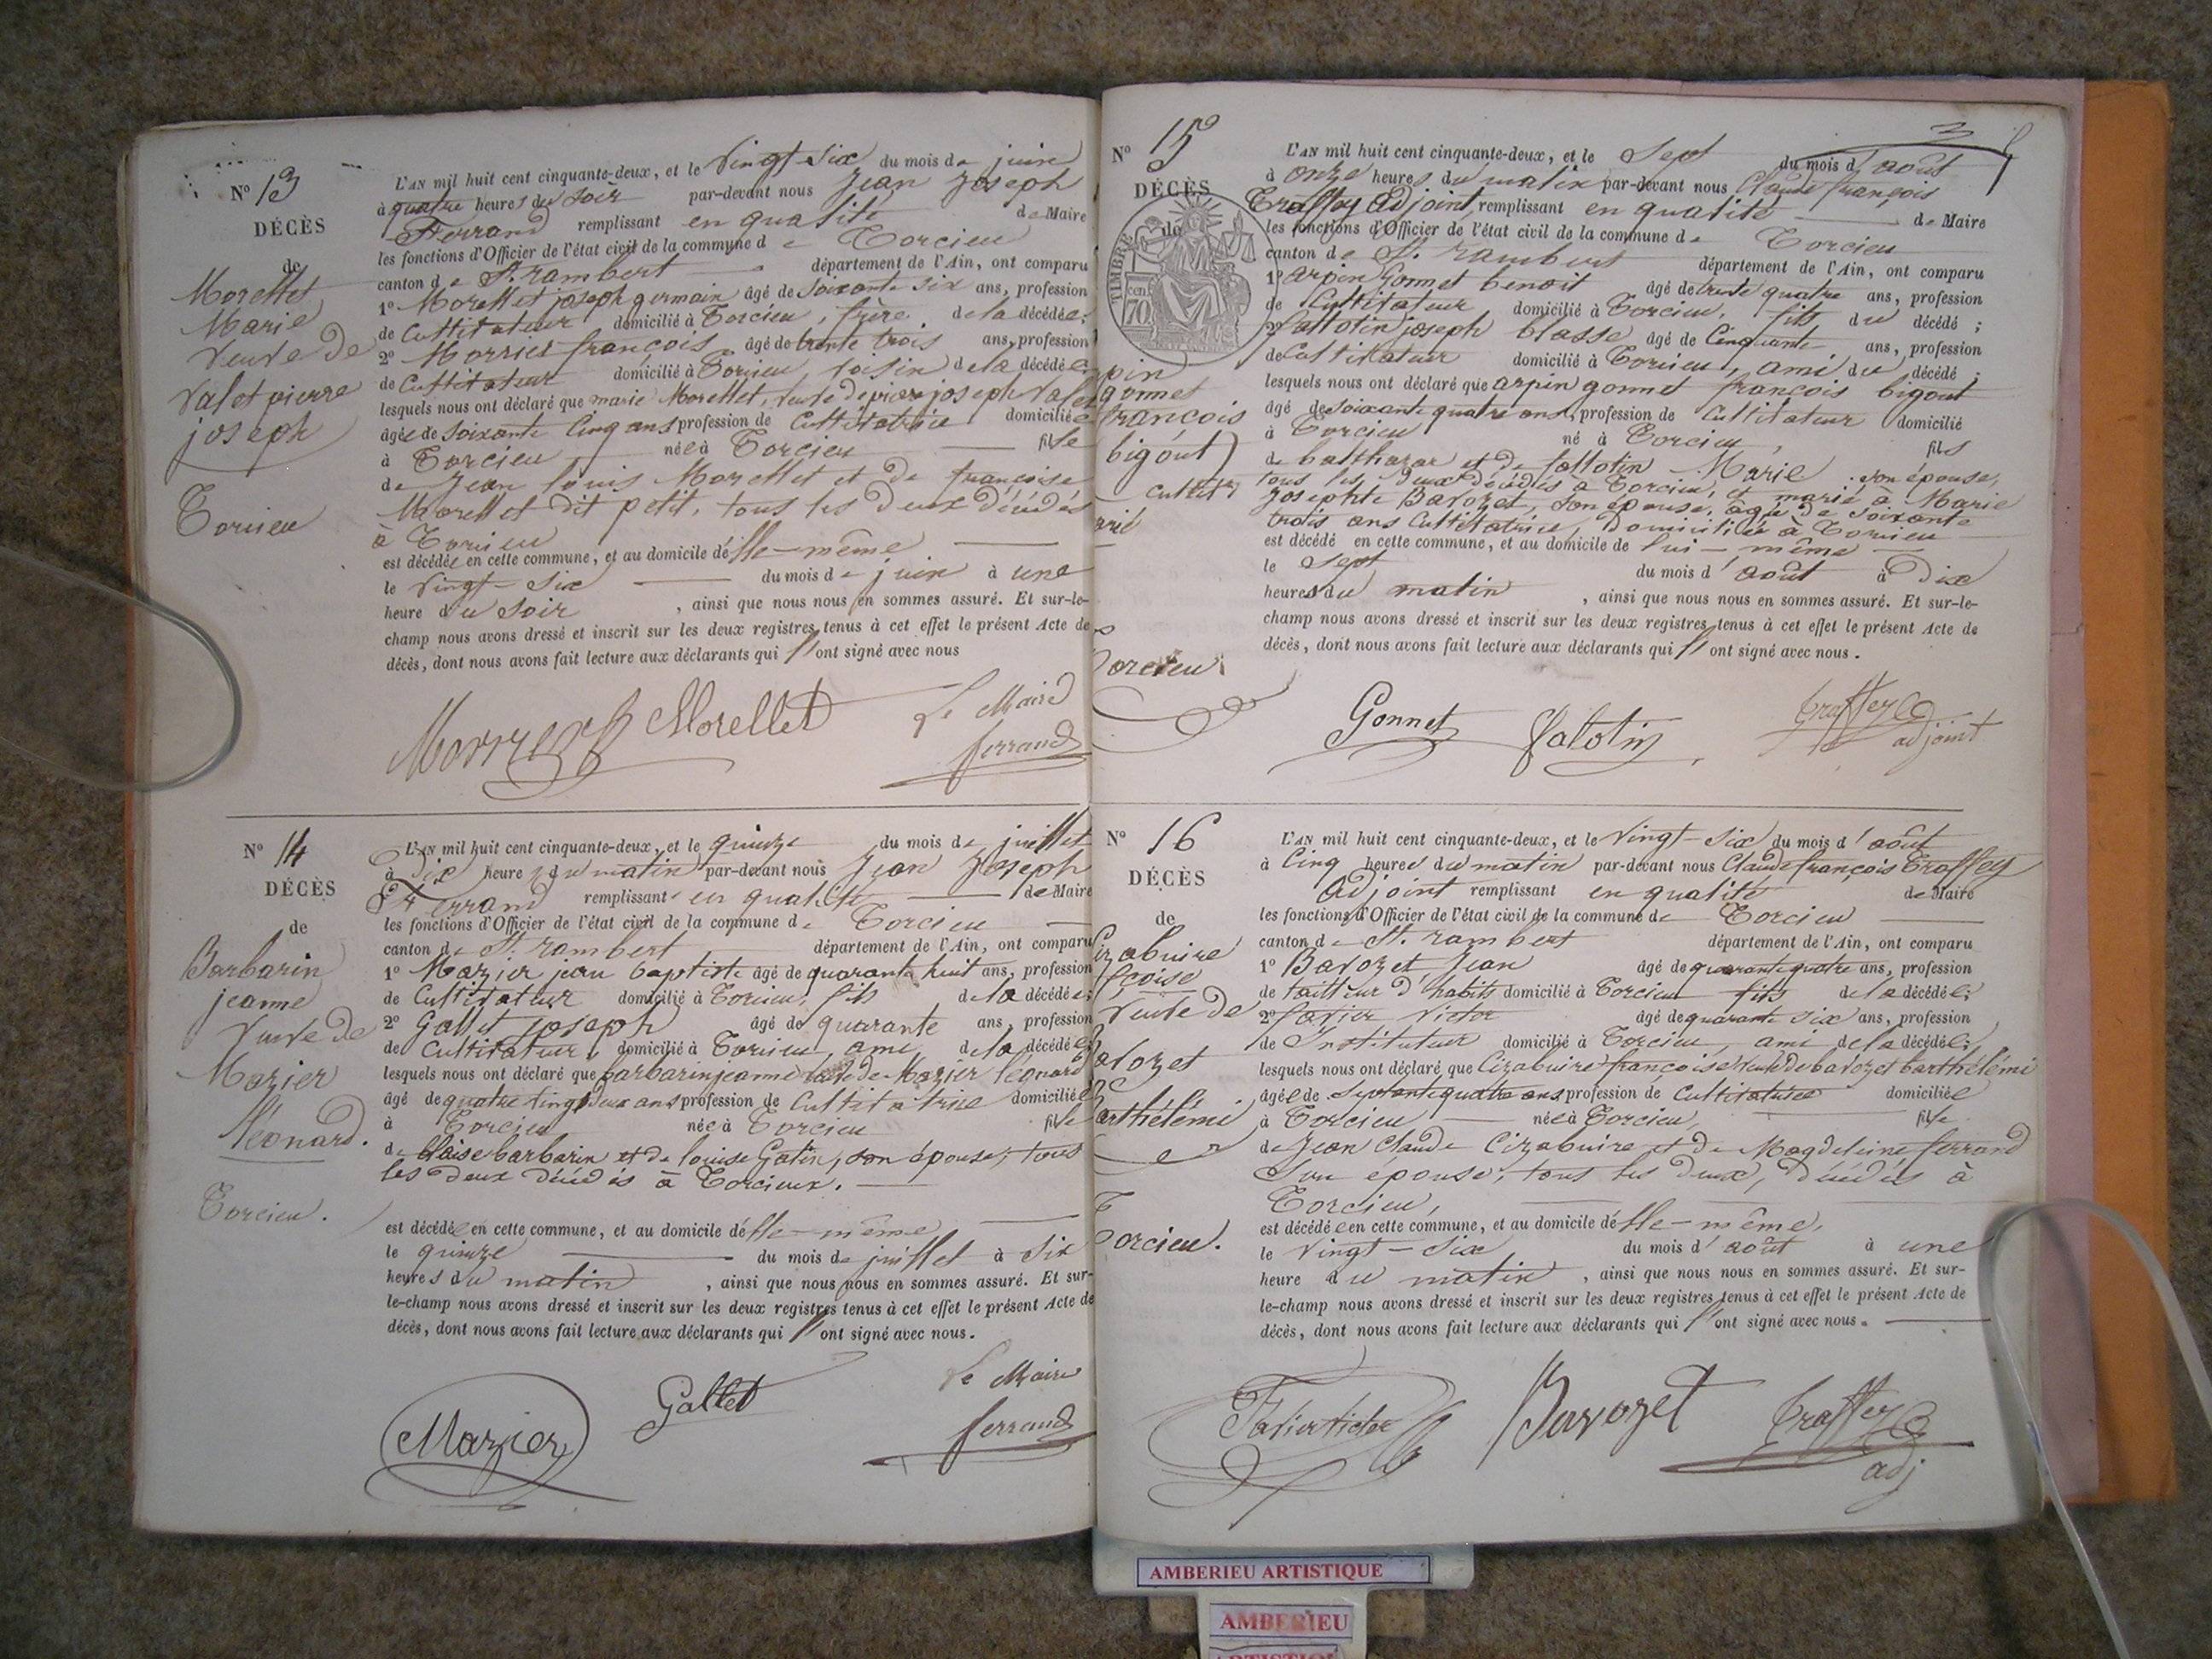 N° 13
DÉCÈS
de
Morellet
Marie
veuve de
Valet pierre
joseph
Torcieu
L'AN mil huit cent cinquante-deux, et le vingt-six du mois de juin
à quatre heures du soir par-devant nous Jean Joseph
Ferrand remplissant en qualité de Maire
les fonctions d'Officier de l'état civil de la commune de Torcieu
canton de St. rambert département de l'Ain, ont comparu
1° Morellet joseph germain âgé de soixante six ans, profession
de Cultivateur domicilié à Torcieu, frère de la décédée;
2° Morrier françois âgé de trente trois ans, profession
de Cultivateur domicilié à Torcieu, voisin de la décédée;
lesquels nous ont déclaré que marie Morellet, veuve de pierre joseph Valet
âgée de soixante cinq ans profession de Cultivatrice domiciliée
à Torcieu née à Torcieu fille
de Jean louis Morellet et de françoise
Morellet dit petit, tous les deux décédés
à Torcieu
est décédée en cette commune, et au domicile d'elle-même
le vingt-six du mois de juin à une
heure du soir, ainsi que nous nous en sommes assuré. Et sur-le-
champ nous avons dressé et inscrit sur les deux registres tenus à cet effet le présent Acte de
décès, dont nous avons fait lecture aux déclarants qui l'ont signé avec nous
Morellet Le Maire
ferrand
N° 14
DÉCÈS
de
Barbarin
jeanne
veuve de
Mazier
léonard.
Torcieu.
L'AN mil huit cent cinquante-deux, et le quinze du mois de juillet
à Dix heures du matin par-devant nous Jean Joseph
Ferrand remplissant en qualité de Maire
les fonctions d'Officier de l'état civil de la commune de Torcieu
canton de St. rambert département de l'Ain, ont comparu
1° Mazier jean baptiste âgé de quarante huit ans, profession
de Cultivateur domicilié à Torcieu, fils de la décédée;
2° Gallet joseph âgé de quarante ans, profession
de Cultivateur, domicilié à Torcieu, ami de la décédée;
lesquels nous ont déclaré que barbarin jeanne veuve de Mazier léonard
âgé de quatre vingt deux ans profession de Cultivatrice domiciliée
à Torcieu née à Torcieu fille
de blaise barbarin et de louise Gatin, son épouse, tous
les deux décédés à Torcieux.
est décédée en cette commune, et au domicile d'elle-même
le quinze du mois de juillet à six
heures du matin, ainsi que nous nous en sommes assuré. Et sur-
le-champ nous avons dressé et inscrit sur les deux registres tenus à cet effet le présent Acte de
décès, dont nous avons fait lecture aux déclarants qui l'ont signé avec nous.
Mazier Gallet Le Maire
ferrand
N° 15
DÉCÈS
de
TIMBRE
70
pin
gonnet
françois
bigout
cultivr
arié
Torcieu.
L'AN mil huit cent cinquante-deux, et le Sept du mois d'août
à onze heures du matin par-devant nous Claude françois
Traffey Adjoint, remplissant en qualité de Maire
les fonctions d'Officier de l'état civil de la commune de Torcieu
canton de St. rambert département de l'Ain, ont comparu
1° arpin Gonnet benoit âgé de trente quatre ans, profession
de Cultivateur domicilié à Torcieu, fils du décédé;
2° fallotin joseph blasse âgé de Cinquante ans, profession
de Cultivateur domicilié à Torcieu, ami du décédé;
lesquels nous ont déclaré que arpin gonnet françois bigout
âgé de soixante quatre ans, profession de Cultivateur domicilié
à Torcieu né à Torcieu, fils
de balthazar et de fallotin Marie son épouse,
tous les deux décédés à Torcieu, et marié à Marie
Josephte Bavozet, son épouse, âgée de soixante
trois ans Cultivatrice, domiciliée à Torcieu
est décédé en cette commune, et au domicile de lui-même
le Sept du mois d'août à Dix
heures du matin, ainsi que nous nous en sommes assuré. Et sur-le-
champ nous avons dressé et inscrit sur les deux registres tenus à cet effet le présent Acte de
décès, dont nous avons fait lecture aux déclarants qui l'ont signé avec nous.
Gonnet falotin Traffey
adjoint
N° 16
DÉCÈS
de
Cizabuire
fçoise
veuve de
Bavozet
barthélémi
Torcieu.
L'AN mil huit cent cinquante-deux, et le vingt-six du mois d'août
à Cinq heures du matin par-devant nous Claude françois Traffey
Adjoint remplissant en qualité de Maire
les fonctions d'Officier de l'état civil de la commune de Torcieu
canton de St. rambert département de l'Ain, ont comparu
1° Bavozet Jean âgé de quarante quatre ans, profession
de tailleur d'habits domicilié à Torcieu fils de la décédée;
2° favier victor âgé de quarante six ans, profession
de Instituteur domicilié à Torcieu, ami de la décédée;
lesquels nous ont déclaré que Cizabuire françoise veuve de bavozet barthélémi
âgée de Septante quatre ans profession de Cultivatrice domiciliée
à Torcieu née à Torcieu, fille
de Jean Claude Cizabuire et de Magdeleine ferrand
son épouse, tous les deux, décédés à
Torcieu,
est décédée en cette commune, et au domicile d'elle-même,
le vingt-six du mois d'août à une
heure du matin, ainsi que nous nous en sommes assuré. Et sur-
le-champ nous avons dressé et inscrit sur les deux registres tenus à cet effet le présent Acte de
décès, dont nous avons fait lecture aux déclarants qui l'ont signé avec nous.
favier victor Bavozet Traffey
adj
AMBERIEU ARTISTIQUE
AMBERIEU
ARTISTIQUE